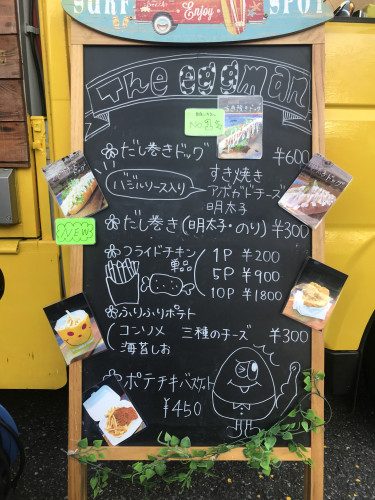 SURF SPOT
Enjoy
The eggman
すき焼きドッグ
だし巻きドッグ ¥600
バジルソース入り
すき焼き
アボカドチーズ
明太子
NEW
だし巻き(明太子・のり) ¥300
フライドチキン
単品
1P ¥200
5P ¥900
10P ¥1800
ふりふりポテト
コンソメ 三種のチーズ ¥300
海苔しお
ポテチキバスケット
¥450